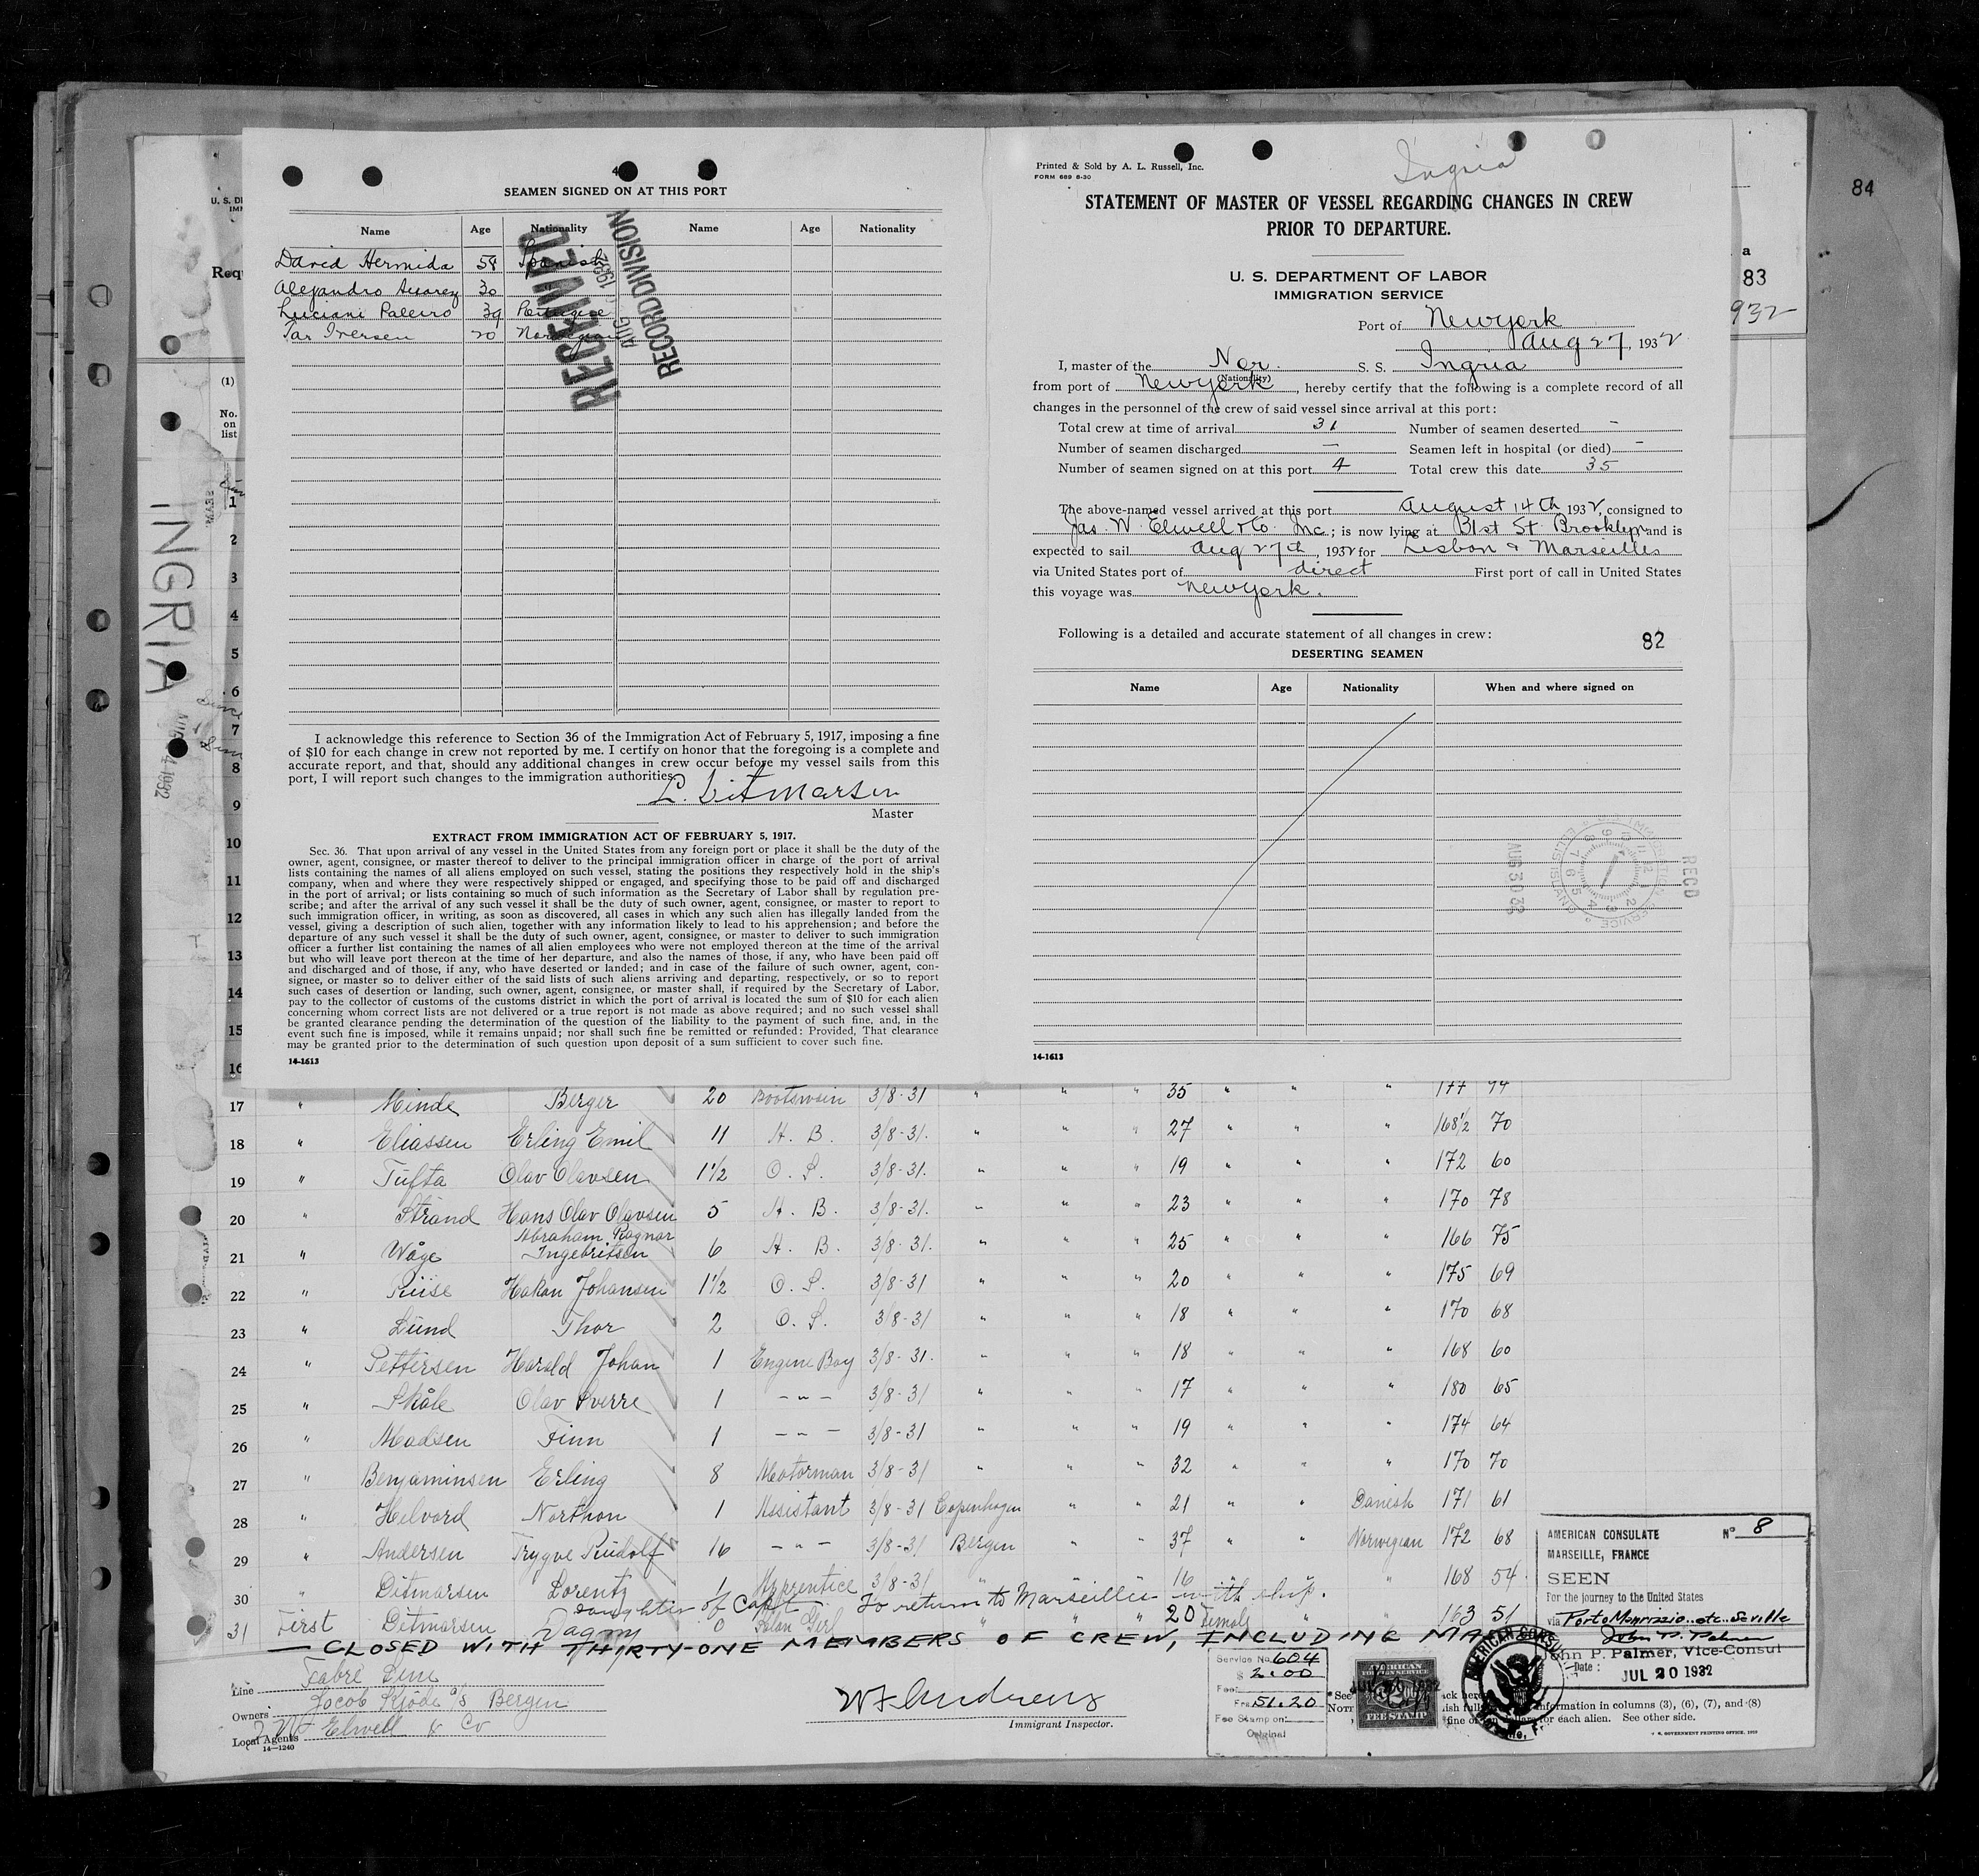 84
83
a
932
U. S. DE
IMM
Requ
(1)
No.
on
list
INGRIA
1
2
3
4
5
6
7
8
9
10
11
12
13
14
15
16
4
SEAMEN SIGNED ON AT THIS PORT
Name Age Nationality Name Age Nationality
David Hermida 58 Spanish
Alejandro Suarez 30
Luciani Paleiro 39 Portugese
Iversen 20 Norwegian
RECEIVED
AUG 1932
RECORD DIVISION
I acknowledge this reference to Section 36 of the Immigration Act of February 5, 1917, imposing a fine
of $10 for each change in crew not reported by me. I certify on honor that the foregoing is a complete and
accurate report, and that, should any additional changes in crew occur before my vessel sails from this
port, I will report such changes to the immigration authorities.
L. Ditmarsen
Master
EXTRACT FROM IMMIGRATION ACT OF FEBRUARY 5, 1917.
Sec. 36. That upon arrival of any vessel in the United States from any foreign port or place it shall be the duty of the
owner, agent, consignee, or master thereof to deliver to the principal immigration officer in charge of the port of arrival
lists containing the names of all aliens employed on such vessel, stating the positions they respectively hold in the ship's
company, when and where they were respectively shipped or engaged, and specifying those to be paid off and discharged
in the port of arrival; or lists containing so much of such information as the Secretary of Labor shall by regulation pre-
scribe; and after the arrival of any such vessel it shall be the duty of such owner, agent, consignee, or master to report to
such immigration officer, in writing, as soon as discovered, all cases in which any such alien has illegally landed from the
vessel, giving a description of such alien, together with any information likely to lead to his apprehension; and before the
departure of any such vessel it shall be the duty of such owner, agent, consignee, or master to deliver to such immigration
officer a further list containing the names of all alien employees who were not employed thereon at the time of the arrival
but who will leave port thereon at the time of her departure, and also the names of those, if any, who have been paid off
and discharged and of those, if any, who have deserted or landed; and in case of the failure of such owner, agent, con-
signee, or master so to deliver either of the said lists of such aliens arriving and departing, respectively, or so to report
such cases of desertion or landing, such owner, agent, consignee, or master shall, if required by the Secretary of Labor,
pay to the collector of customs of the customs district in which the port of arrival is located the sum of $10 for each alien
concerning whom correct lists are not delivered or a true report is not made as above required; and no such vessel shall
be granted clearance pending the determination of the question of the liability to the payment of such fine, and, in the
event such fine is imposed, while it remains unpaid; nor shall such fine be remitted or refunded: Provided, That clearance
may be granted prior to the determination of such question upon deposit of a sum sufficient to cover such fine.
14-1613
Printed & Sold by A. L. Russell, Inc.
FORM 689 8-30
Ingria
STATEMENT OF MASTER OF VESSEL REGARDING CHANGES IN CREW
PRIOR TO DEPARTURE.
U. S. DEPARTMENT OF LABOR
IMMIGRATION SERVICE
Port of Newyork
Aug 27, 1932
I, master of the Nor. S. S. Ingria
(Nationality)
from port of Newyork, hereby certify that the following is a complete record of all
changes in the personnel of the crew of said vessel since arrival at this port:
Total crew at time of arrival 31 Number of seamen deserted -
Number of seamen discharged - Seamen left in hospital (or died) -
Number of seamen signed on at this port 4 Total crew this date 35
The above-named vessel arrived at this port August 14th 1932, consigned to
Jas. W. Elwell & Co. Inc.; is now lying at 31st St. Brooklyn and is
expected to sail Aug 27th, 1932 for Lisbon & Marseilles
via United States port of direct First port of call in United States
this voyage was Newyork.
Following is a detailed and accurate statement of all changes in crew:
82
DESERTING SEAMEN
Name Age Nationality When and where signed on
RECD
AUG 30 32
14-1613
17 " Minde Berger 20 Bootswain 3/8-31 " " " 35 " " " 177 74
18 " Eliassen Erling Emil 11 A. B. 3/8-31. " " " 27 " " " 168½ 70
19 " Tufta Olav Olavsen 1½ O. S. 3/8-31. " " " 19 " " " 172 60
20 " Strand Hans Olav Olavsen 5 A. B. 3/8-31. " " " 23 " " " 170 78
21 " Wåge Abraham Ragnar Ingebritsen 6 A. B. 3/8-31. " " " 25 " " " 166 75
22 " Riise Hakon Johansen 1½ O. S. 3/8-31 " " " 20 " " " 175 69
23 " Lund Thor 2 O. S. 3/8-31 " " " 18 " " " 170 68
24 " Pettersen Harald Johan 1 Engine Boy 3/8-31. " " " 18 " " " 168 60
25 " Skåle Olav Sverre 1 - " - 3/8-31 " " " 17 " " " 180 65
26 " Madsen Finn 1 - " - 3/8-31 " " " 19 " " " 174 64
27 " Benjaminsen Erling 8 Motorman 3/8-31 " " " 32 " " " 170 70
28 " Helvord Northon 1 Assistant 3/8-31 Copenhagen " " 21 " " Danish 171 61
29 " Andersen Trygve Rudolf 16 - " - 3/8-31 Bergen " " 37 " " Norwegian 172 68
30 " Ditmarsen Lorentz 1 Apprentice 3/8-31 " 16 " 168 54
daughter of Capt. To return to Marseilles with ship.
31 First Ditmarsen Dagny 0 Salon Girl " " " 20 Female " " 163 51
— CLOSED WITH THIRTY-ONE MEMBERS OF CREW, INCLUDING
Line Fabre Line
Owners Jacob Kjöde a/s Bergen
Local Agents J. W. Elwell & Co
14-1240
Immigrant Inspector.
Service No. 604
$ 2.00
Fee:
Frs. 51.20
Fee Stamp on:
Original
AMERICAN
FEE STAMP
AMERICAN CONSULATE No 8
MARSEILLE, FRANCE
SEEN
For the journey to the United States
via Porto Maurizio etc. Seville
John P. Palmer
John P. Palmer, Vice-Consul
Date: JUL 20 1932
*See
NOTE
ack here
information in columns (3), (6), (7), and (8)
for each alien. See other side.
U. S. GOVERNMENT PRINTING OFFICE